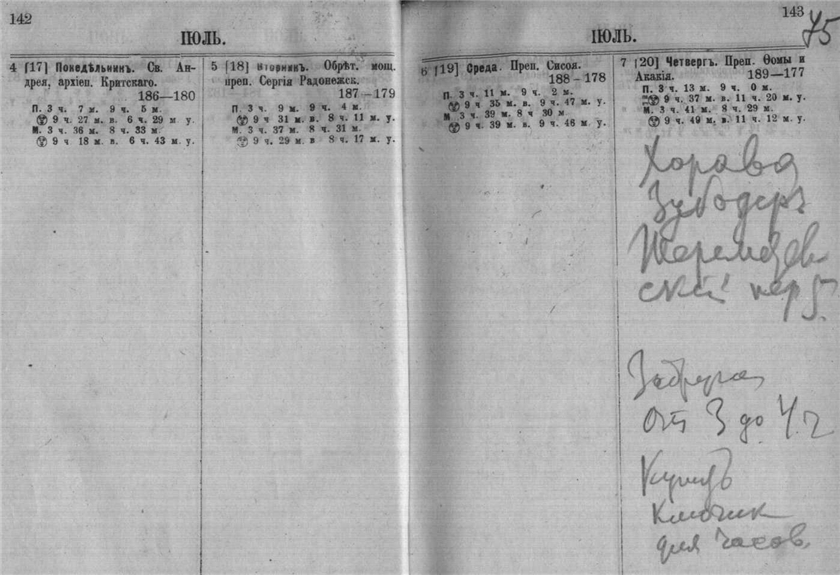 142
ІЮЛЬ.
4 [17] Понедѣльникъ. Св. Ан-
дрея, архіеп. Критскаго.
186—180
П. 3 ч. 7 м. 9 ч. 5 м.
9 ч. 27 м. в. 6 ч. 29 м у.
М. 3 ч. 36 м. 8 ч. 33 м
9 ч 18 м. в. 6 ч. 43 м у.
5 [18] Вторникъ. Обрѣт. мощ.
преп. Сергія Радонежск.
187—179
П. 3 ч. 9 м. 9 ч. 4 м.
9 ч 31 м. в. 8 ч. 11 м. у.
М. 3 ч. 37 м. 8 ч. 31 м.
9 ч. 29 м. в 8 ч. 17 м. у.
143
75
ІЮЛЬ.
6 [19] Среда. Преп. Сисоя.
188-178
П. 3 ч. 11 м. 9 ч. 2 м.
9 ч 35 м. в. 9 ч. 47 м. у.
М 3 ч. 39 м. 8 ч 30 м
9 ч. 39 м. в. 9 ч. 46 м. у.
7 [20] Четвергъ. Преп. Ѳомы и
Акакія.
189—177
П. 3 ч. 13 м. 9 ч. 0 м.
9 ч. 37 м. в. 11 ч. 20 м. у.
М. 3 ч. 41 м. 8 ч. 29 м.
9 ч. 49 м. в. 11 ч. 12 м. у.
Зубодеръ
Шереметев
ский пер 5.
от 3 до 4 г
Купить
ключик
для часов